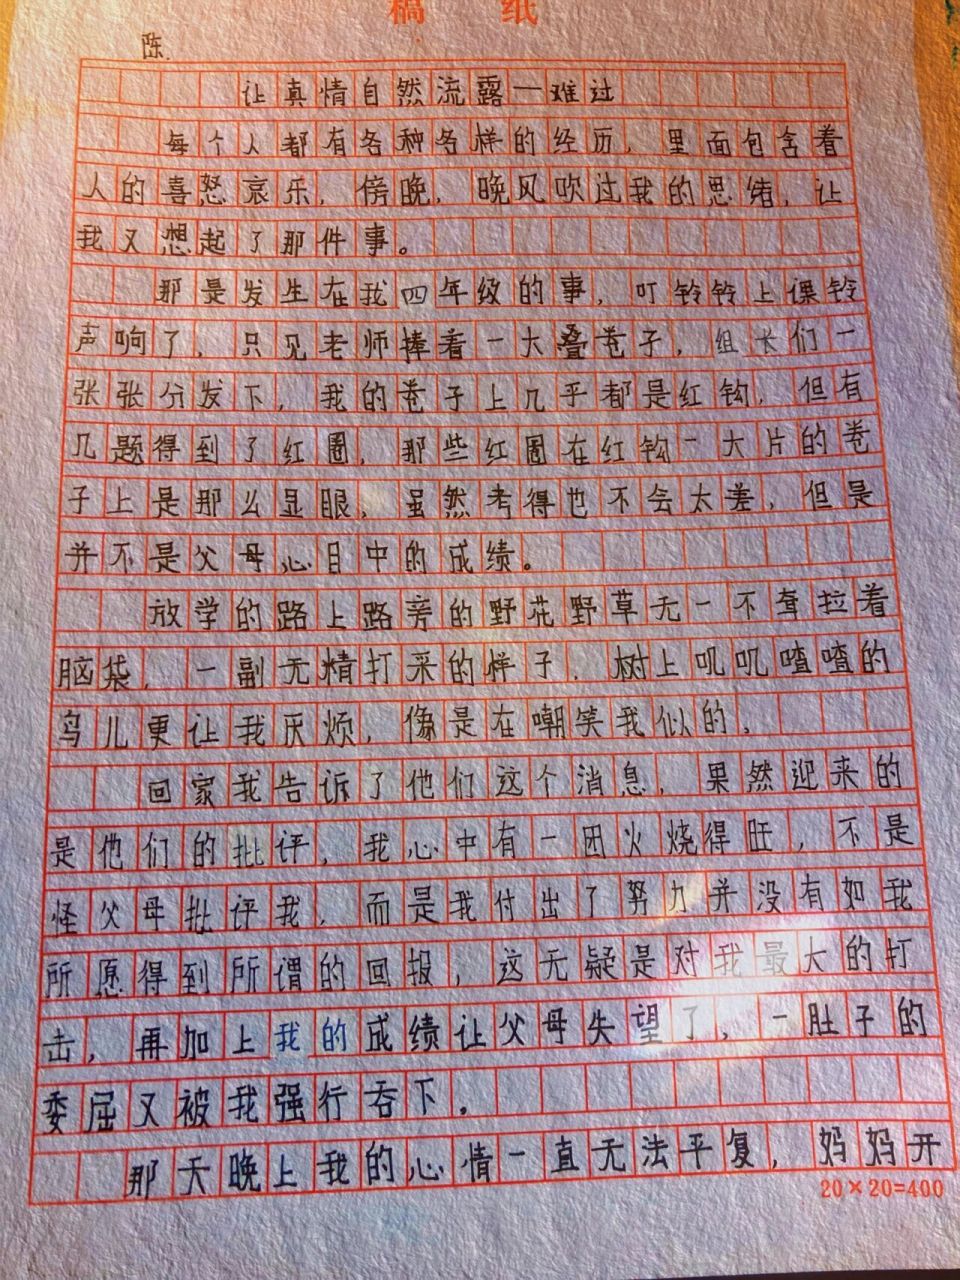 稿 纸
陈.
让真情自然流露一难过
每个人都有各种各样的经历，里面包含着
人的喜怒哀乐，傍晚，晚风吹过我的思绪，让
我又想起了那件事。
那是发生在我四年级的事，叮铃铃上课铃
声响了，只见老师捧着一大叠卷子，组长们一
张张分发下，我的卷子上几乎都是红钩，但有
几题得到了红圈，那些红圈在红钩一大片的卷
子上是那么显眼，虽然考得也不会太差，但是
并不是父母心目中的成绩。
放学的路上路旁的野花野草无一不耷拉着
脑袋，一副无精打采的样子．树上叽叽喳喳的
鸟儿更让我厌烦，像是在嘲笑我似的，
回家我告诉了他们这个消息，果然迎来的
是他们的批评，我心中有一团火烧得旺，不是
怪父母批评我，而是我付出了努力并没有如我
所愿得到所谓的回报，这无疑是对我最大的打
击，再加上我的成绩让父母失望了，一肚子的
委屈又被我强行吞下。
那天晚上我的心情一直无法平复，妈妈开
20×20=400